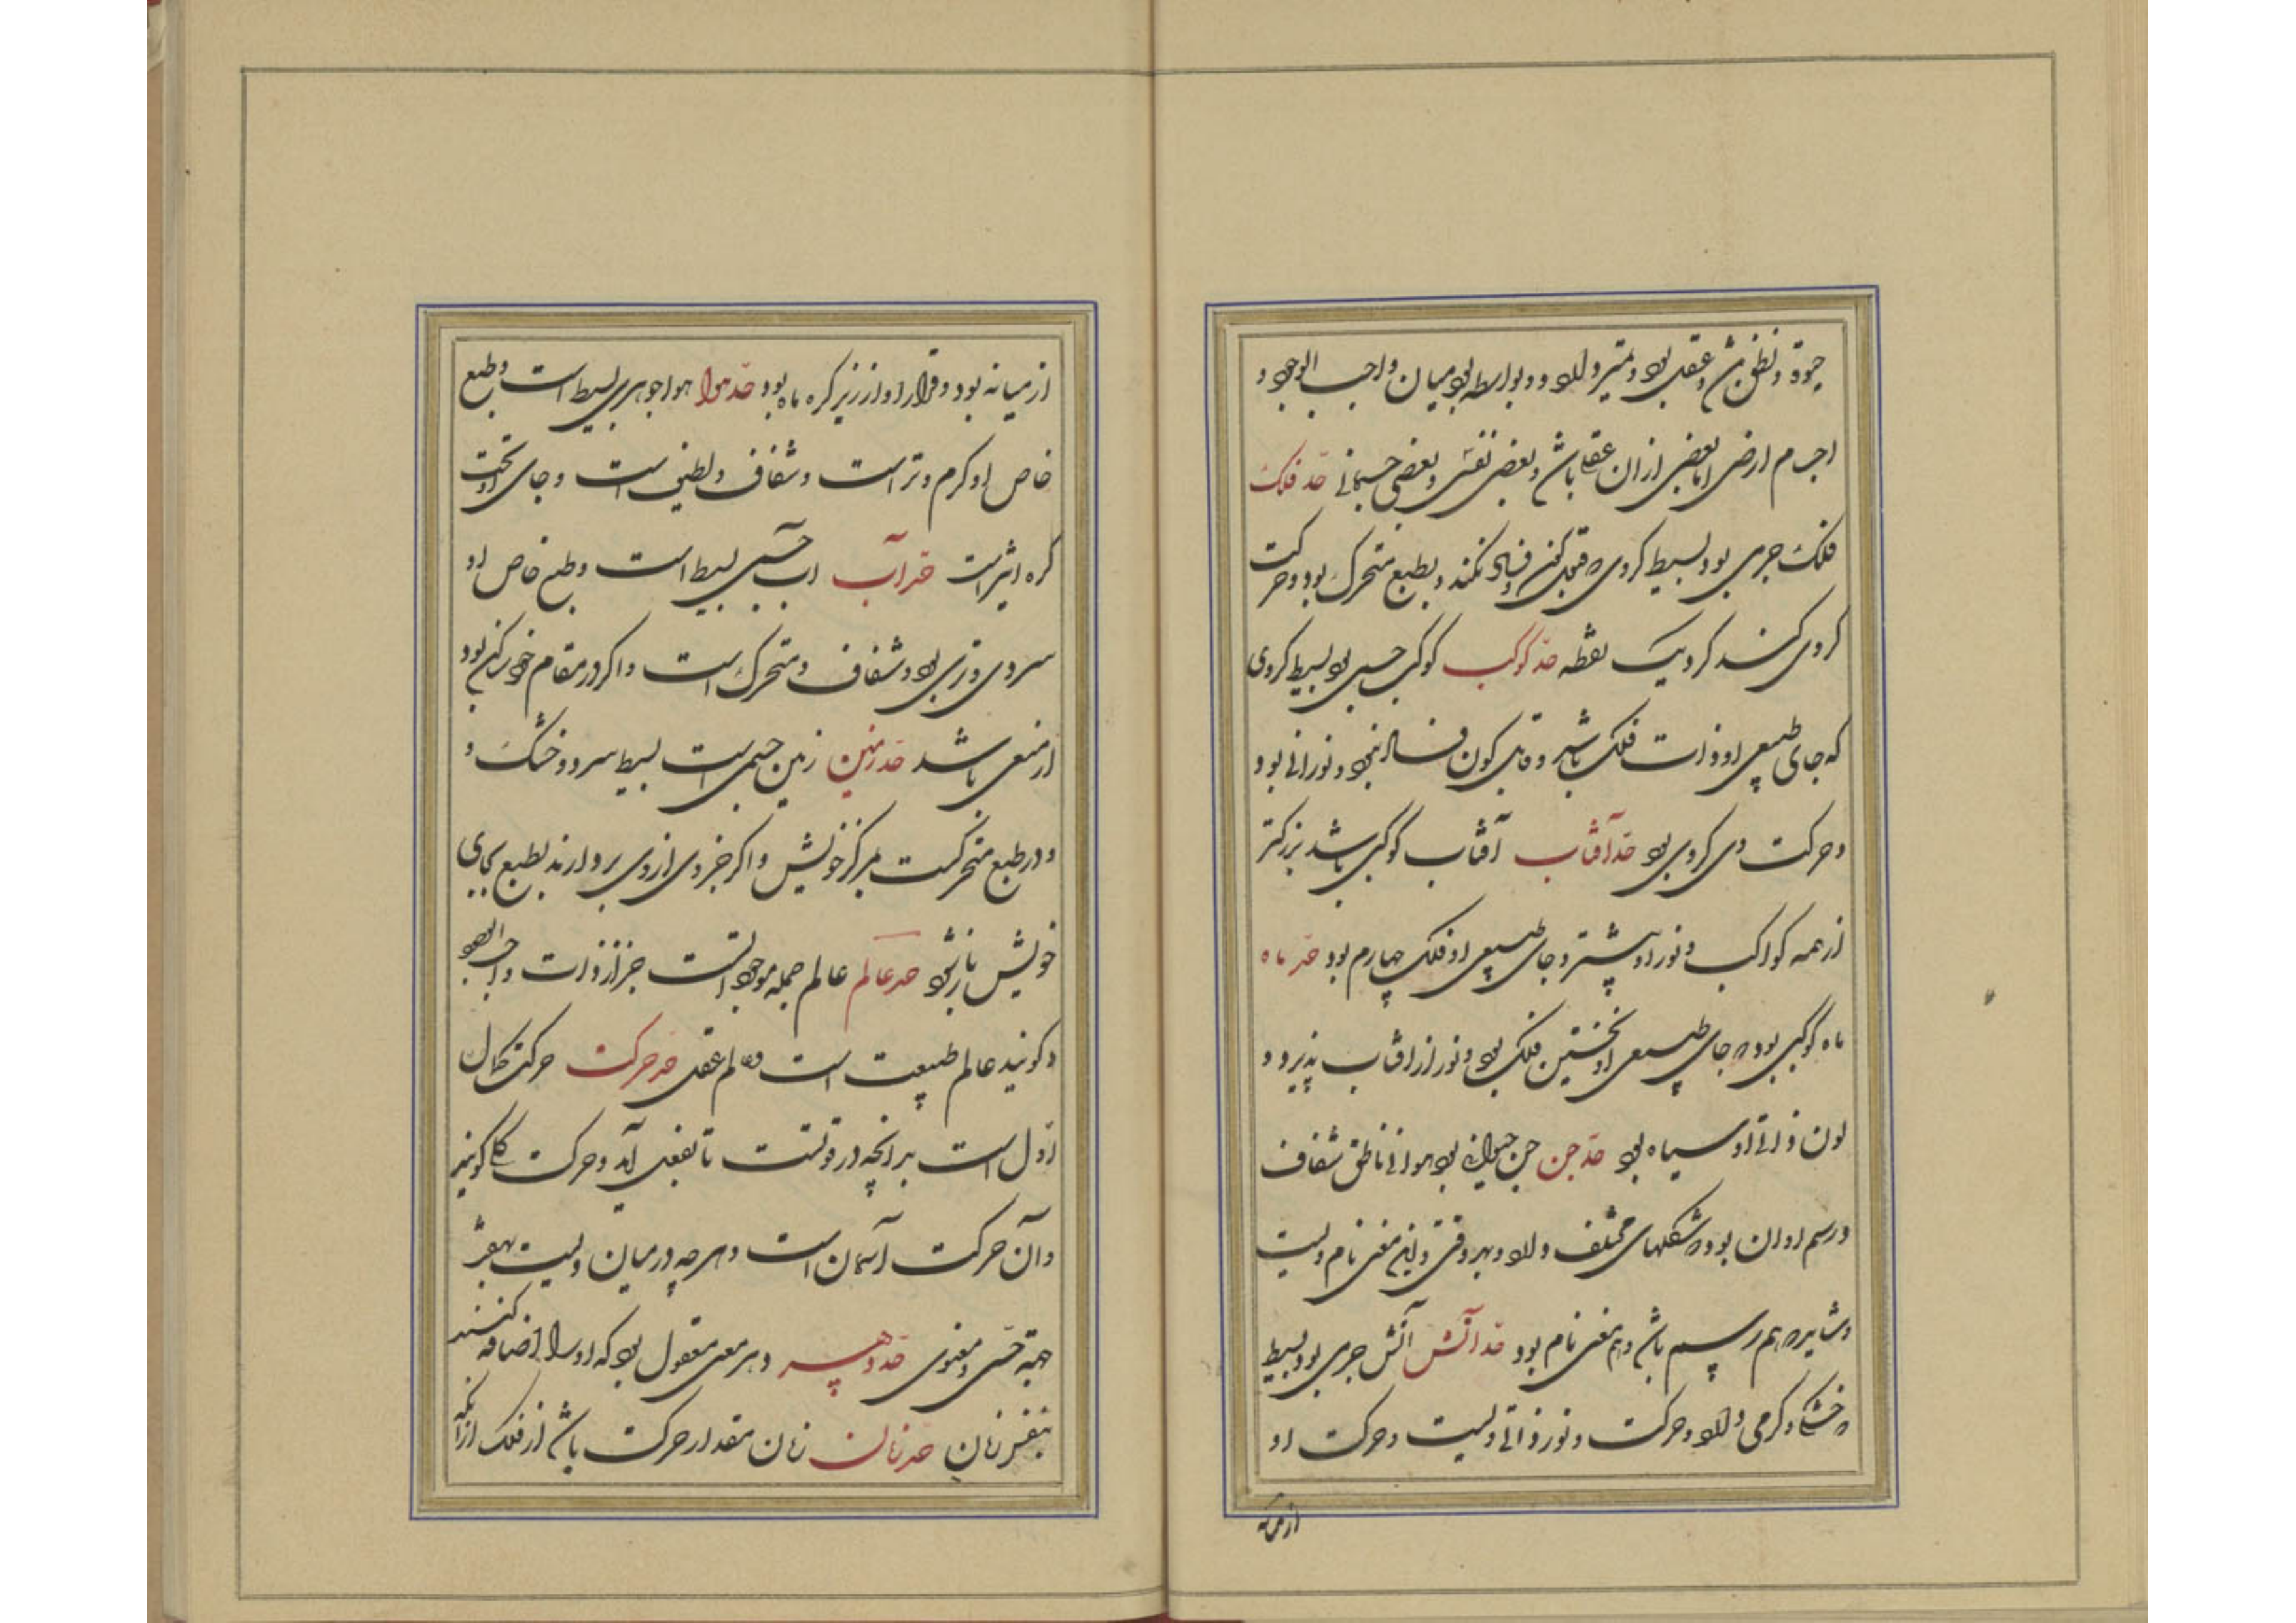 حیوة و نطق باشد و عقلی بود و متمیز و لله و واسطه بود میان واجب الوجود و
اجرام ارضی اما بعضی از ان عقلی باشد و بعضی نفسی و بعضی جسمانی حد فلک
فلک جرمی بود بسیط کروی که قبول کون و فساد نکند و بطبع متحرک بود و حرکت
کروی کند کرد یک نقطه حد کوکب کوکب جسمی بود بسیط کروی
که جای طبیعی او ذات فلک باشد و قابل کون و فساد نبود و نورانی بود
و حرکت وی کروی بود حد آفتاب آفتاب کوکبی باشد بزرکتر
از همه کواکب و نور او بیشتر و جای طبیعی او فلک چهارم بود حد ماه
ماه کوکبی بود که جای طبیعی او نخستین فلک بود و نور از افتاب پذیرد و
لون ذاتی او سیاه بود حد جن جن حیوانی بود هوائی ناطق شفاف
و رسم او ان بود که شکلهای مختلف و بهر وقتی و این معنی نام ویست
و شاید که هم رسم باشد و هم معنی نام بود حد آتش آتش جرمی بود بسیط
که خشکی و کرمی و حرکت و نور ذاتی ویست و حرکت او
از میانه
از میانه بود و قرار او از زیر کره ماه بود حد هوا هوا جوهری بسیط است و طبع
خاص او کرم و تر است و شفاف و لطیف است و جای او تحت
کره اثیر است حد آب اب جسمی بسیط است و طبع خاص او
سردی و تری بود و شفاف و متحرک است و اکر در مقام خود ساکن بود
ارضی باشد حد زمین زمین جسمی است بسیط سرد و خشک و
و در طبع متحرکست بمرکز خویش و اکر جزوی از وی بردارند بطبع بجای
خویش باز شود حد عالم عالم جمله موجوداتست جز از ذات واجب الوجود
و کویند عالم طبیعت است و عالم عقلی حد حرکت حرکت کمال
اول است بر انچه در قوتست تا بفعل آید و حرکت کل کویند
و آن حرکت آسمان است و هر چه در میان ویست بهر
جهة حسی و معنوی حد دهر دهر معنی معقول بود که او را اضافه کنند
بنفس زمان حد زمان زمان مقدار حرکت باشد از فلک از آنکه